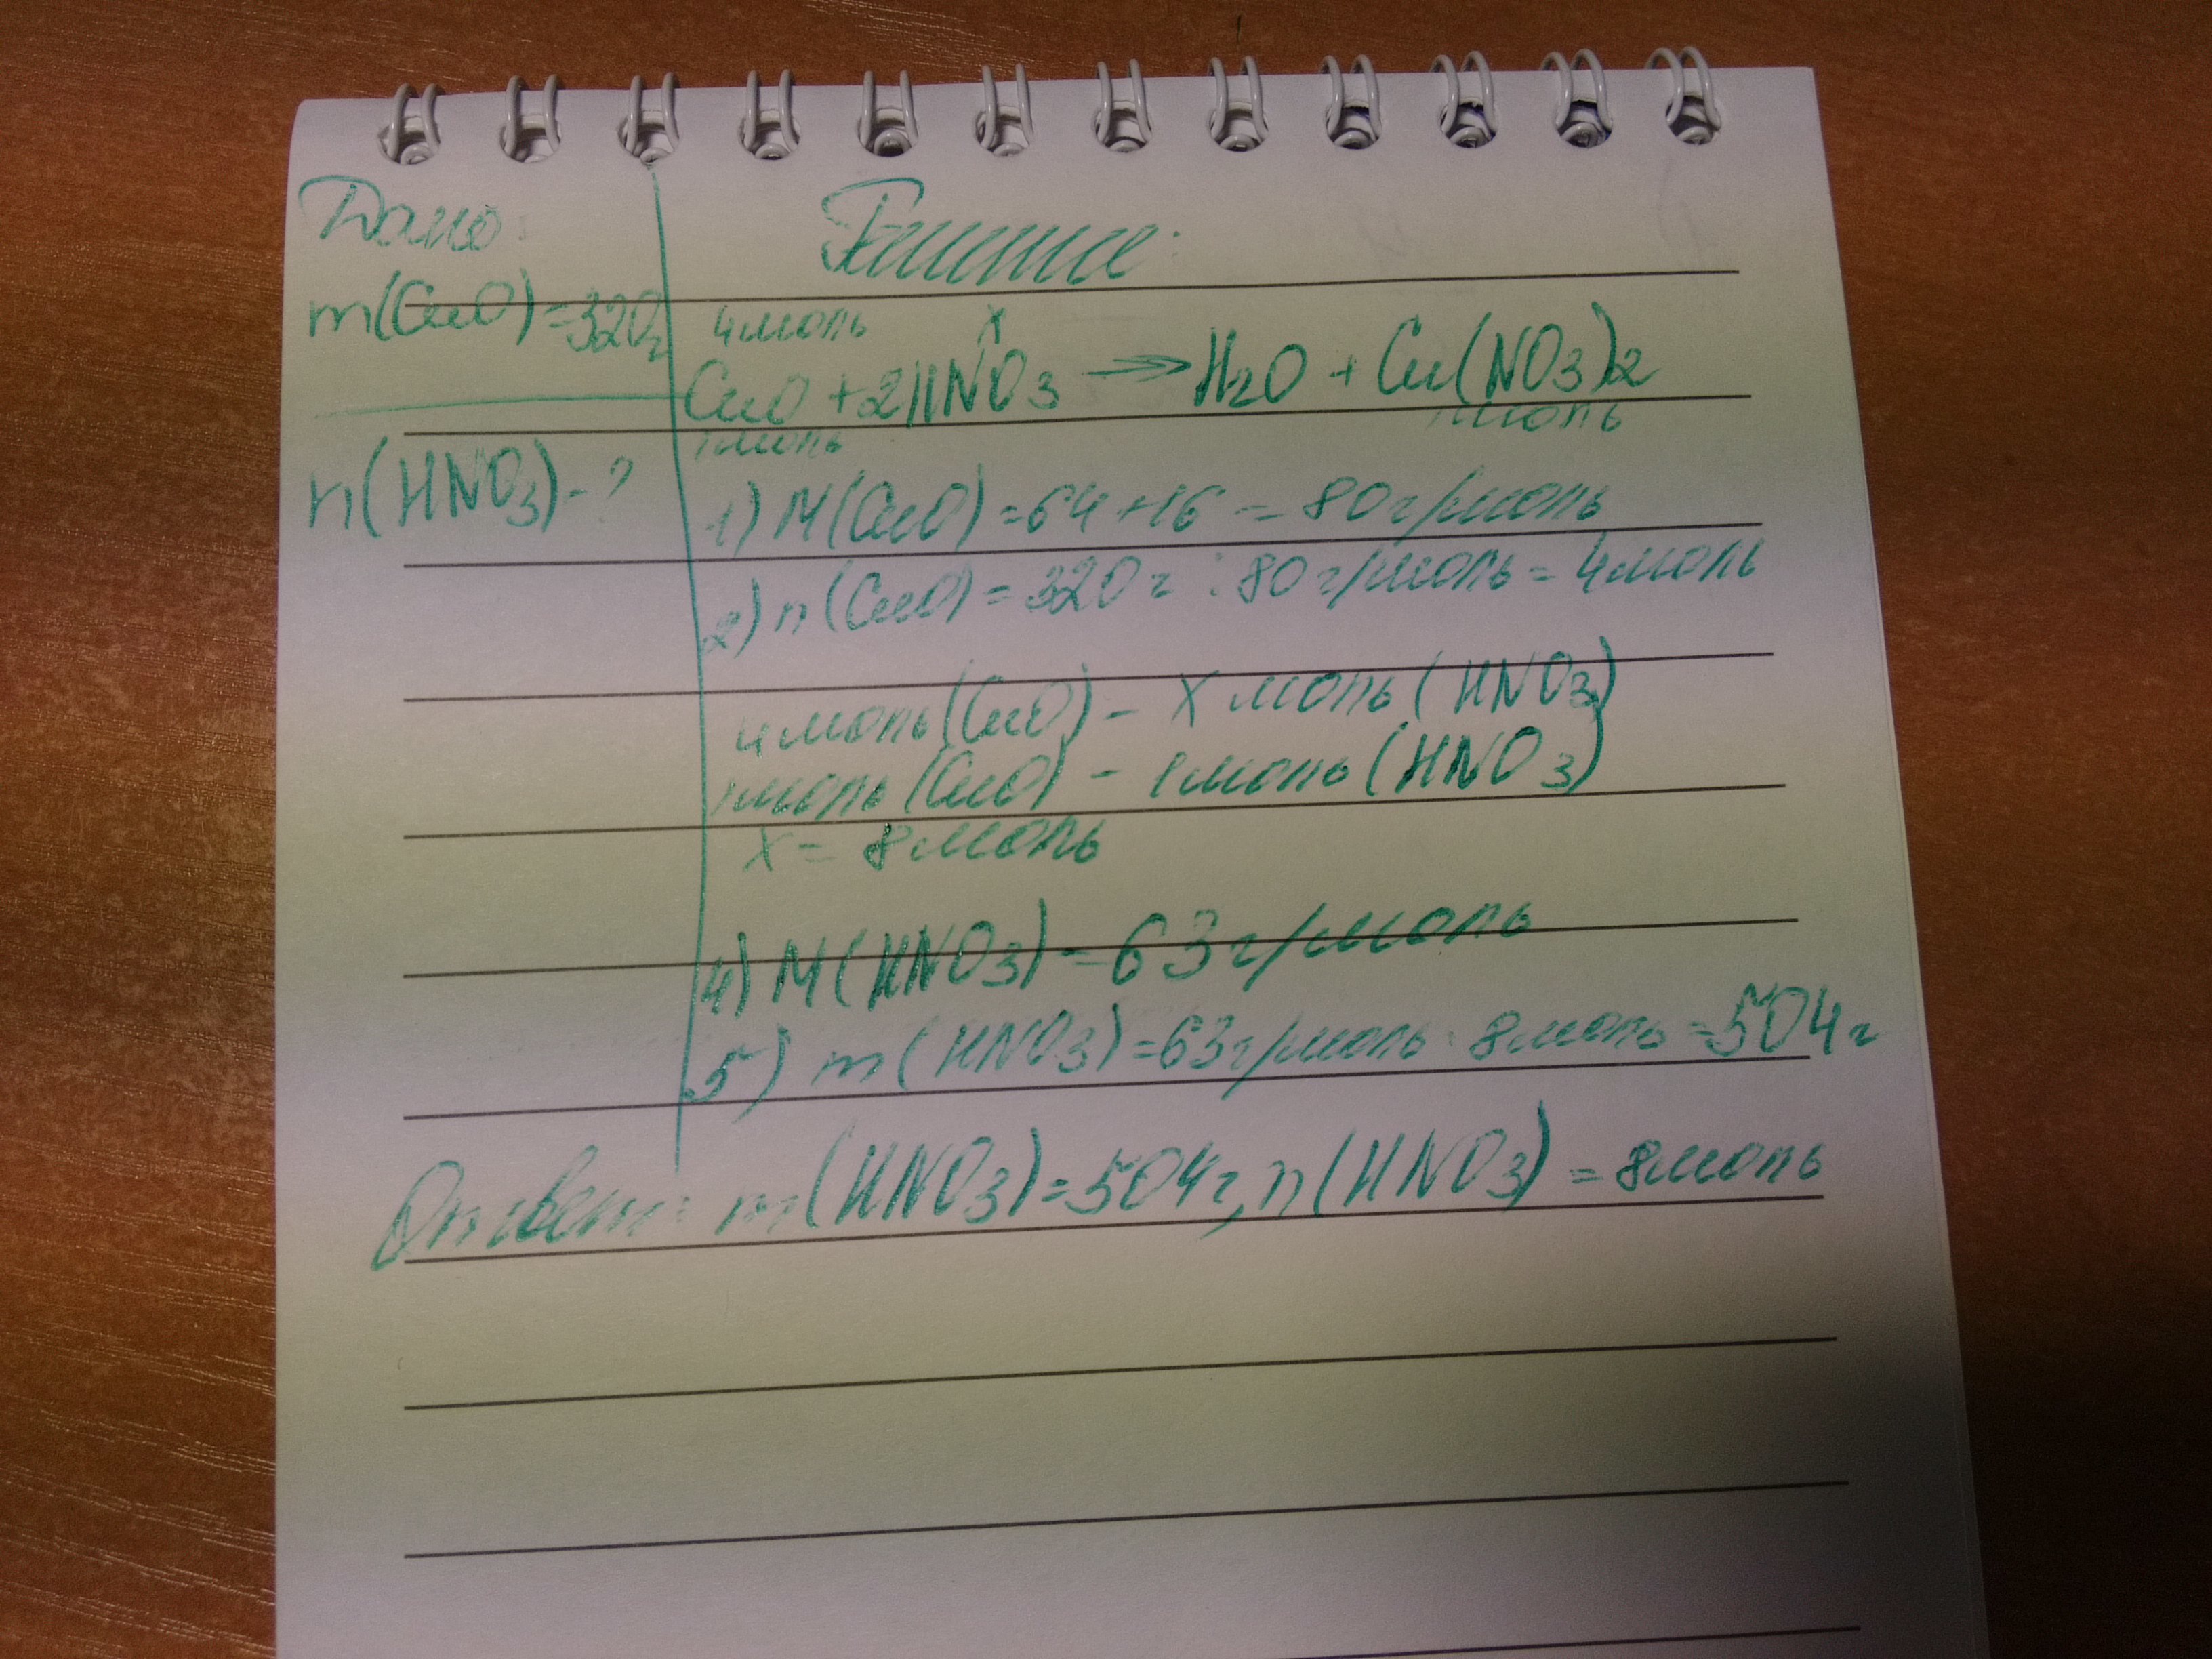 Дано:
m(CuO)=320г
n(HNO3)-?
Решение:
4моль x
CuO + 2HNO3 → H2O + Cu(NO3)2
1моль 1моль
1) M(CuO)=64+16=80г/моль
2) n(CuO)=320г:80г/моль=4моль
4моль(CuO) - x моль(HNO3)
1моль(CuO) - 1моль(HNO3)
x= 8моль
4) M(HNO3)=63г/моль
5) m(HNO3)=63г/моль·8моль=504г
Ответ: m(HNO3)=504г, n(HNO3)=8моль